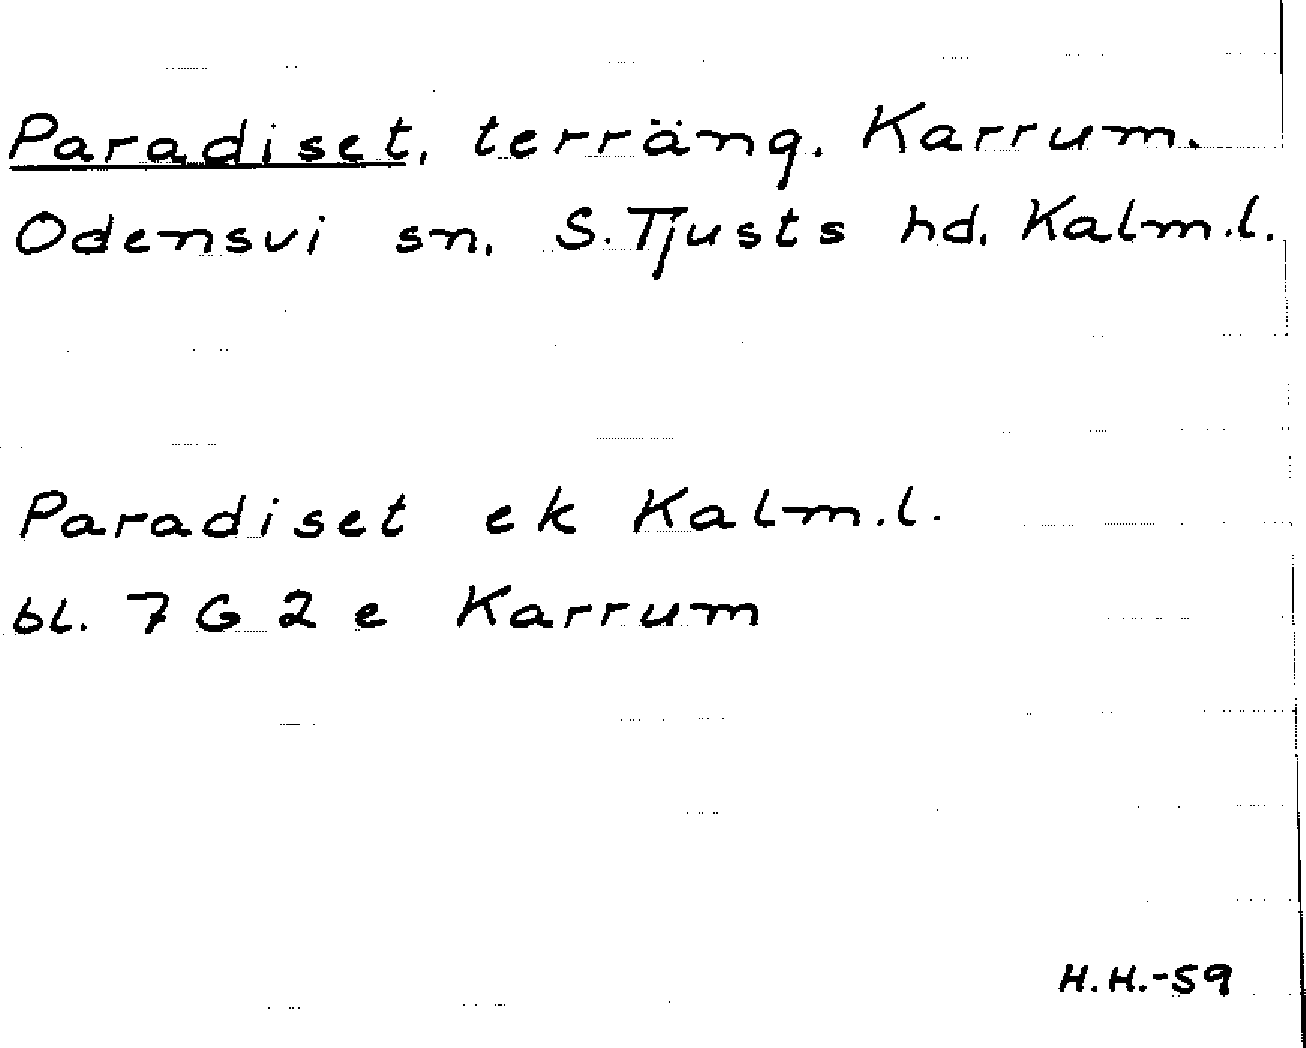 Paradiset, terräng. Karrum.
Odensvi sn. S. Tjusts hd. Kalm.l.
Paradiset ek Kalm.l.
bl. 7 G 2 e Karrum
H.H.-59